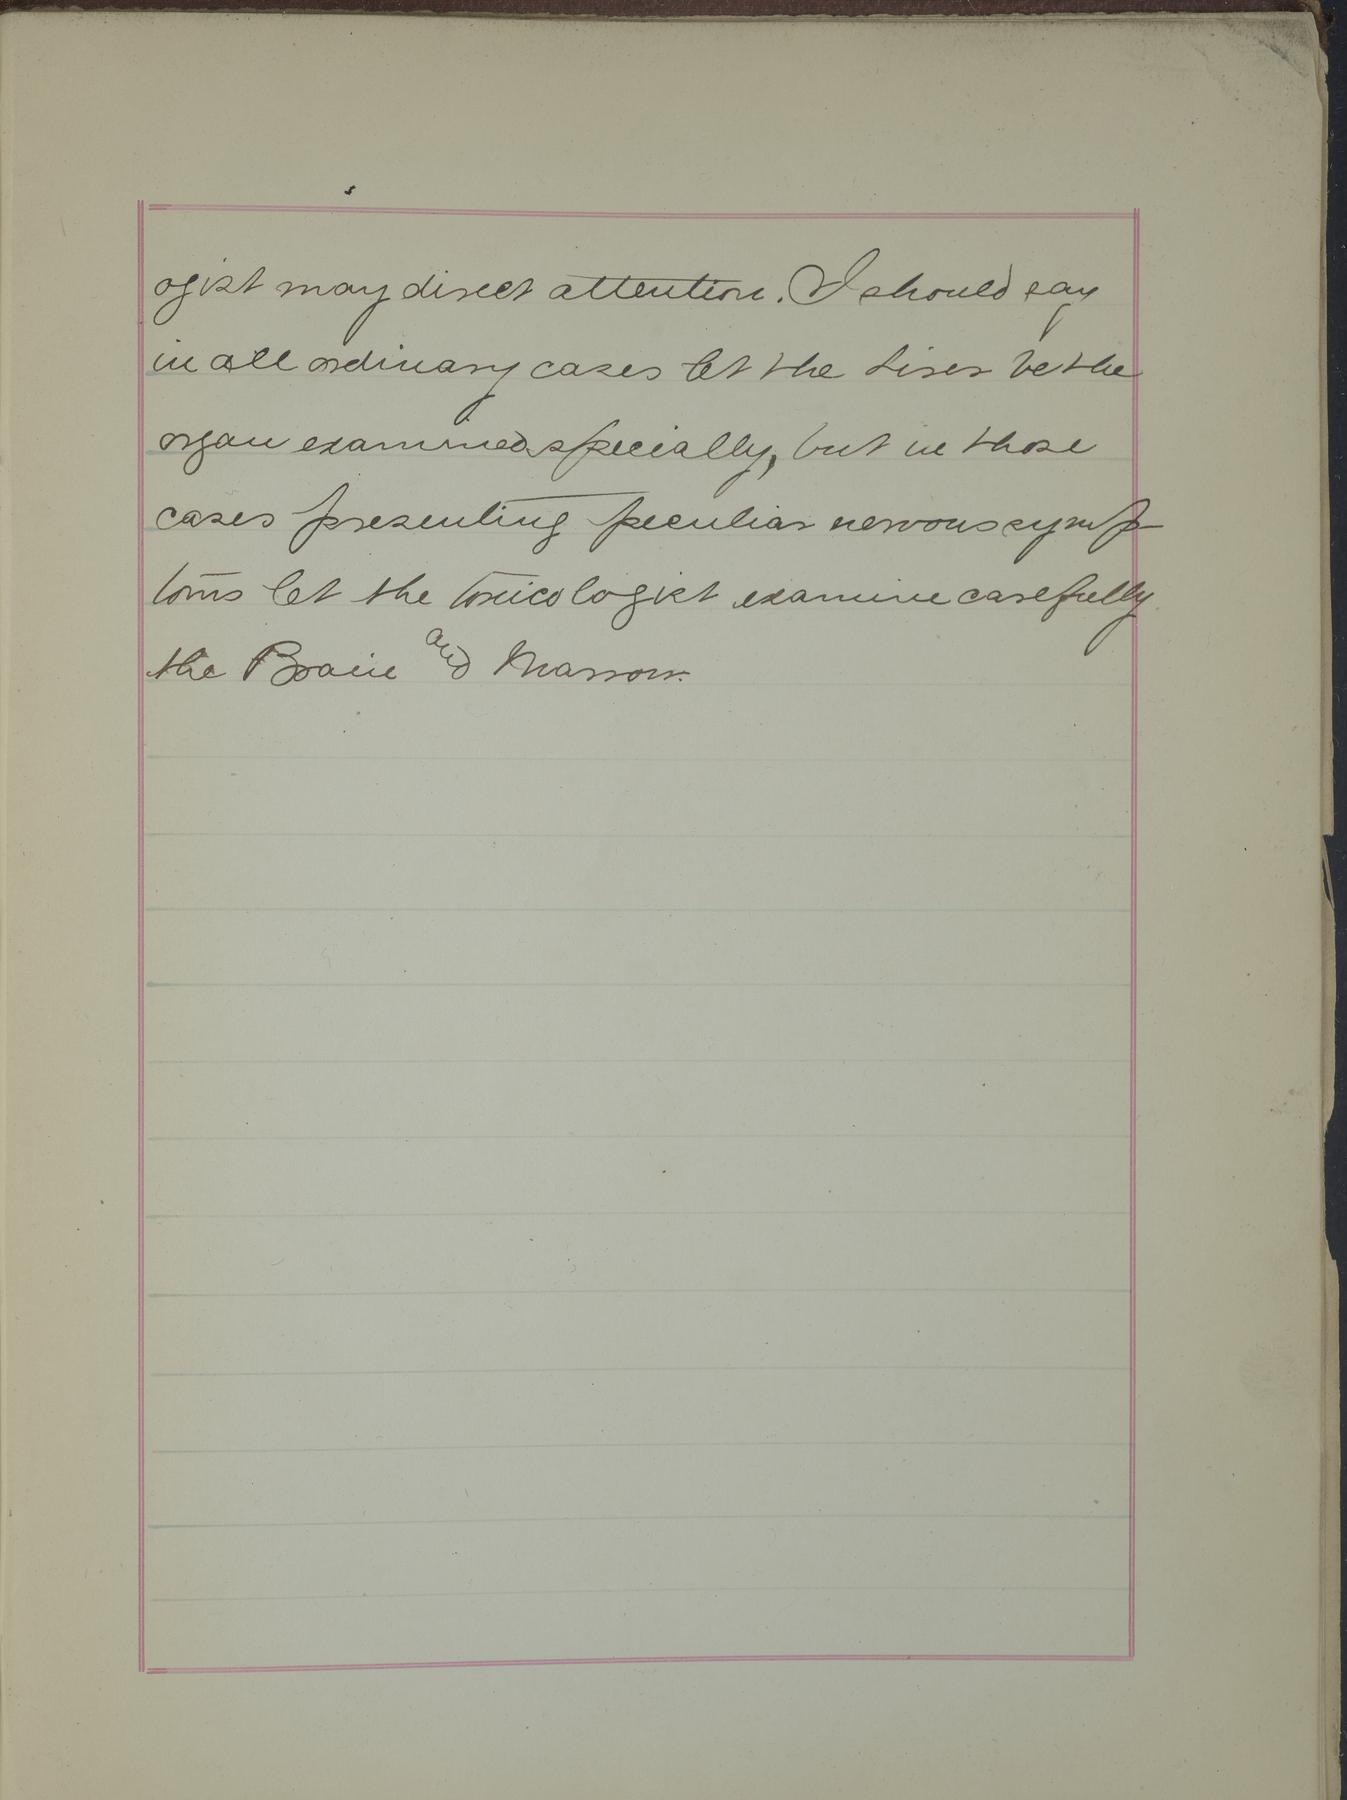 ogist may direct attention. I should say
in all ordinary cases let the liver be the
organ examined specially, but in those
cases presenting peculiar nervous symp-
toms let the toxicologist examine carefully
the Brain and Marrow.